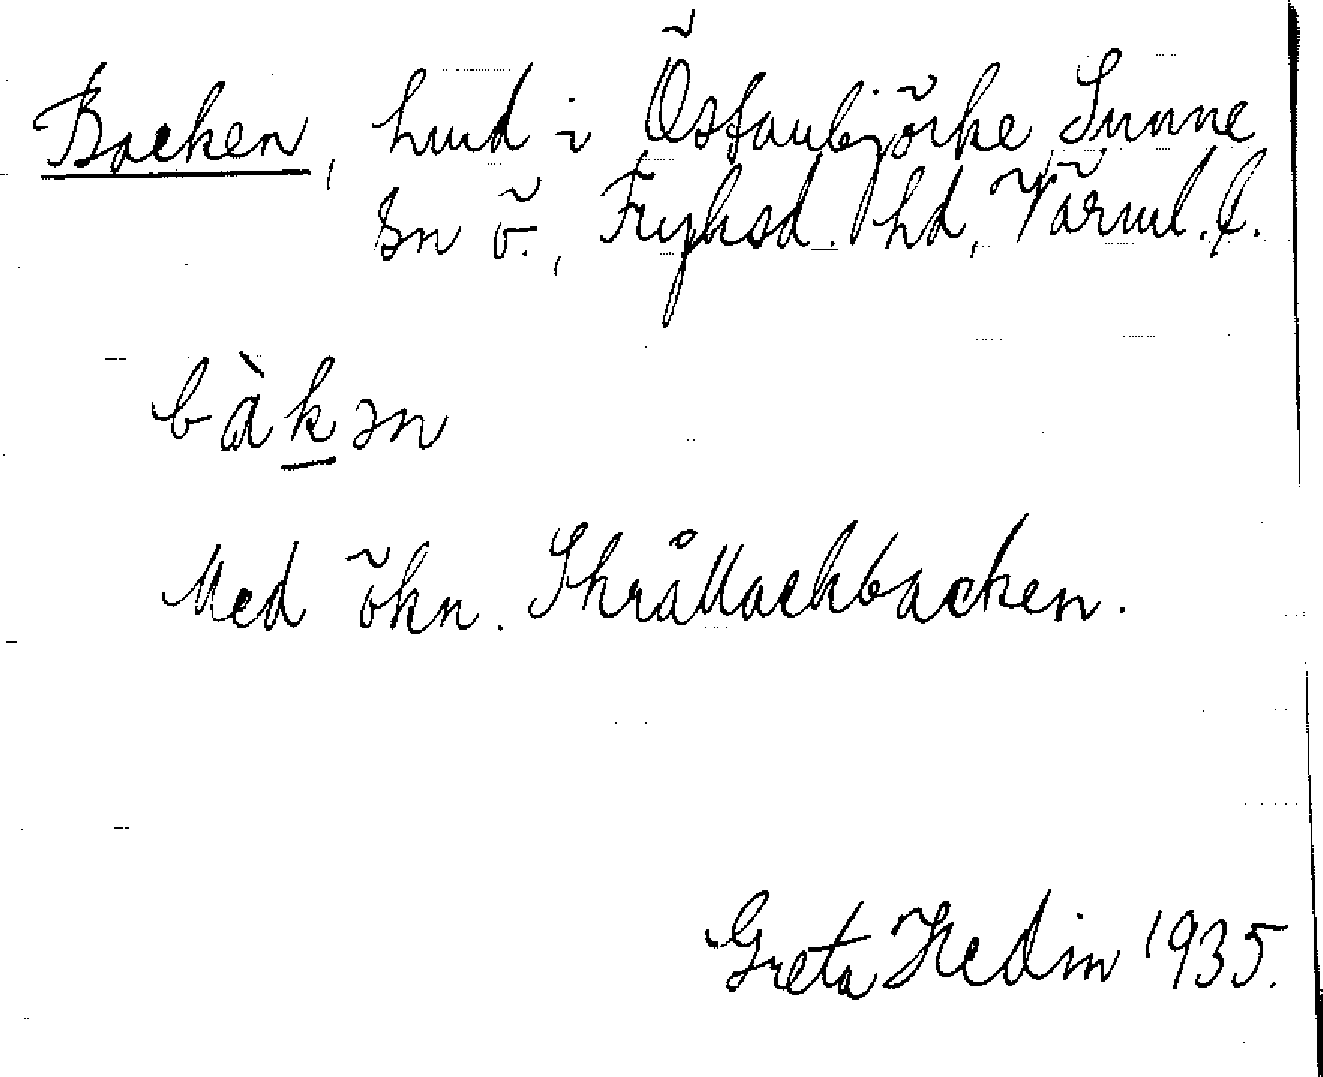 Backen, hmd i Östanbjörke Sunne
sn ö., Fryksd. hd, Värml. l.
bàkən
Med ökn. Skrållackbacken.
Greta Hedin 1935.